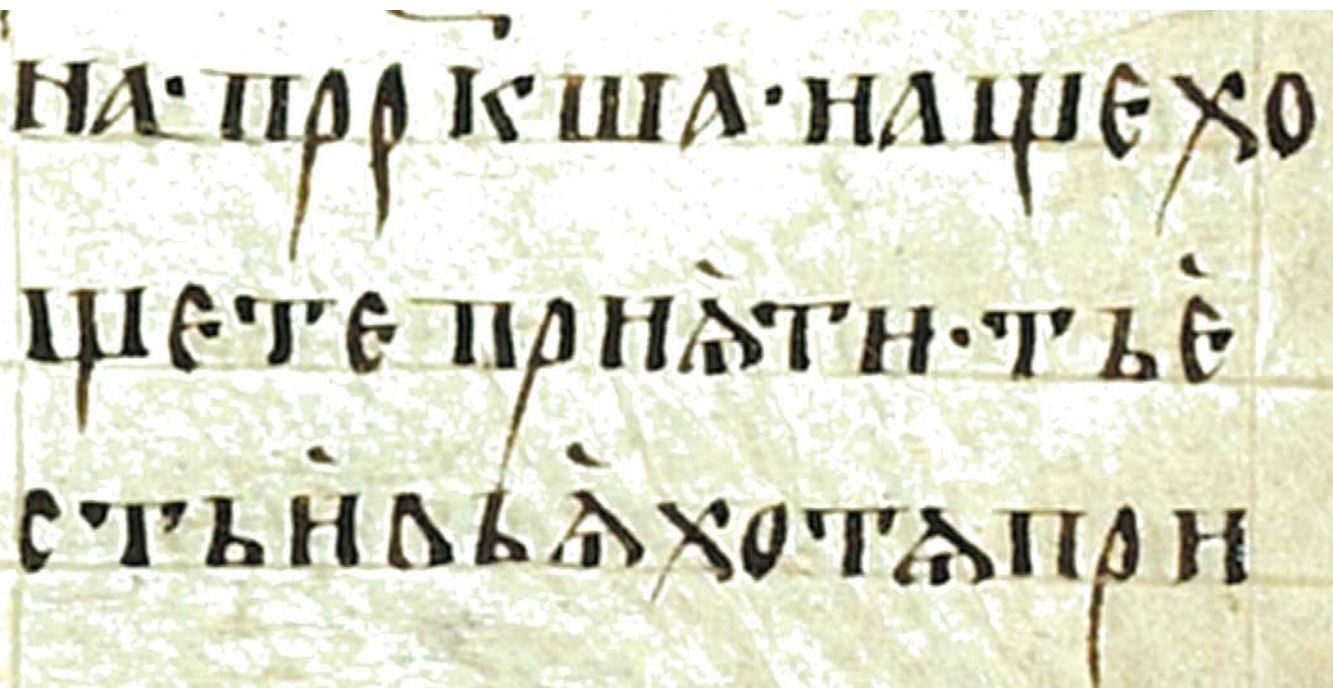 на·прркша·иащехо
щетеприѧ̀ти·тьѐ
стьѝльѧ̀хотѧпри